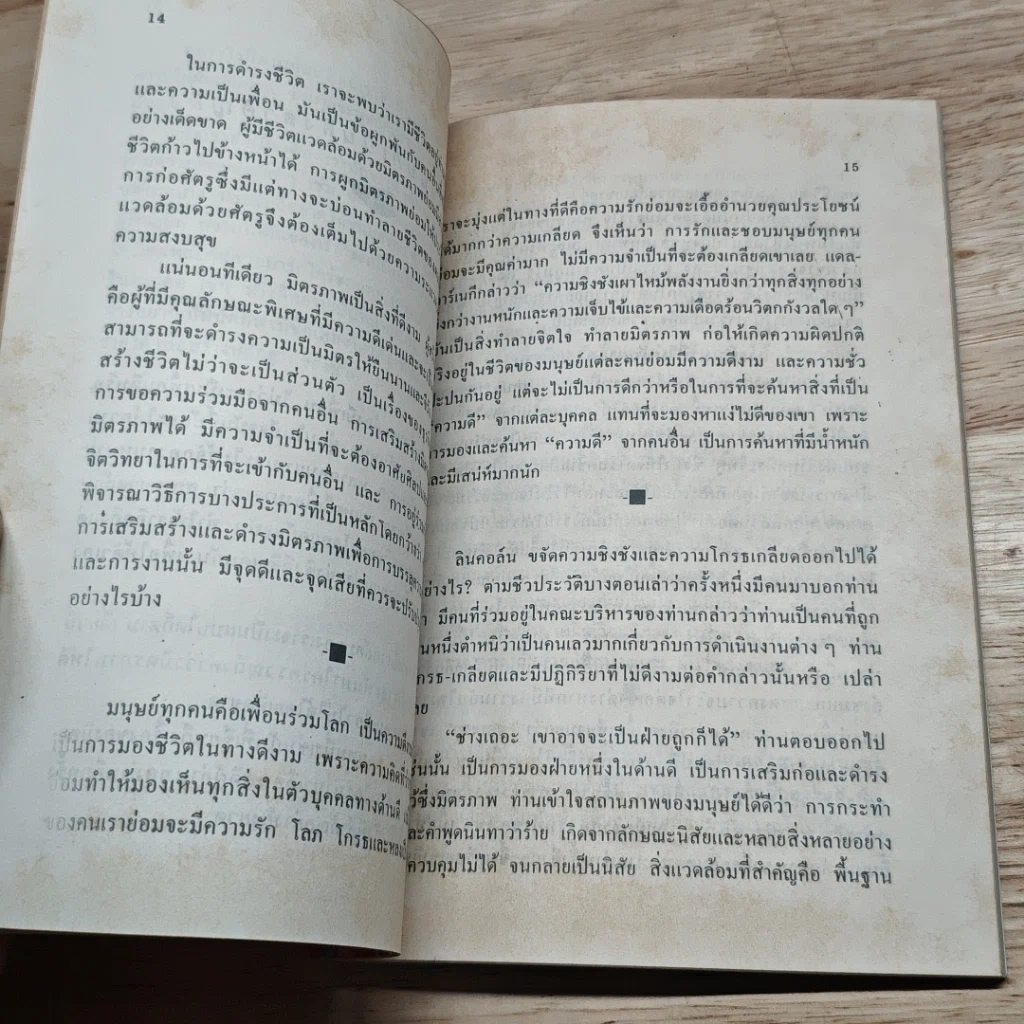 14
ในการดำรงชีวิต เราจะพบว่าเรามีชีวิตอยู่
และความเป็นเพื่อน มันเป็นข้อผูกพันกับคนอื่น
อย่างเด็ดขาด ผู้มีชีวิตแวดล้อมด้วยมิตรภาพย่อม
ชีวิตก้าวไปข้างหน้าได้ การผูกมิตรภาพย่อม
การก่อศัตรูซึ่งมีแต่ทางจะบ่อนทำลายชีวิตของ
แวดล้อมด้วยศัตรูจึงต้องเต็มไปด้วยความ
ความสงบสุข
แน่นอนทีเดียว มิตรภาพเป็นสิ่งที่ดีงาม
คือผู้ที่มีคุณลักษณะพิเศษที่มีความดีเด่นและ
สามารถที่จะดำรงความเป็นมิตรให้ยืนนานและ
สร้างชีวิตไม่ว่าจะเป็นส่วนตัว เป็นเรื่องของ
การขอความร่วมมือจากคนอื่น การเสริมสร้าง
มิตรภาพได้ มีความจำเป็นที่จะต้องอาศัยศิลป
จิตวิทยาในการที่จะเข้ากับคนอื่น และ การอยู่ร่วม
พิจารณาวิธีการบางประการที่เป็นหลักโดยกว้าง
การเสริมสร้างและดำรงมิตรภาพเพื่อการบรรลุ
และการงานนั้น มีจุดดีและจุดเสียที่ควรจะปรับ
อย่างไรบ้าง
มนุษย์ทุกคนคือเพื่อนร่วมโลก เป็นความ
เป็นการมองชีวิตในทางดีงาม เพราะความคิด
ย่อมทำให้มองเห็นทุกสิ่งในตัวบุคคลทางด้านดี
ของคนเราย่อมจะมีความรัก โลภ โกรธและ
15
เราจะมุ่งแต่ในทางที่ดีคือความรักย่อมจะเอื้ออำนวยคุณประโยชน์
ได้มากกว่าความเกลียด จึงเห็นว่า การรักและชอบมนุษย์ทุกคน
ย่อมจะมีคุณค่ามาก ไม่มีความจำเป็นที่จะต้องเกลียดเขาเลย แดล-
คาร์เนกีกล่าวว่า “ความชิงชังเผาไหม้พลังงานยิ่งกว่าทุกสิ่งทุกอย่าง
ยิ่งกว่างานหนักและความเจ็บไข้และความเดือดร้อนวิตกกังวลใด ๆ”
มันเป็นสิ่งทำลายจิตใจ ทำลายมิตรภาพ ก่อให้เกิดความผิดปกติ
จริงอยู่ในชีวิตของมนุษย์แต่ละคนย่อมมีความดีงาม และความชั่ว
ปะปนกันอยู่ แต่จะไม่เป็นการดีกว่าหรือในการที่จะค้นหาสิ่งที่เป็น
“ความดี” จากแต่ละบุคคล แทนที่จะมองหาแง่ไม่ดีของเขา เพราะ
การมองและค้นหา “ความดี” จากคนอื่น เป็นการค้นหาที่มีน้ำหนัก
และมีเสน่ห์มากนัก
ลินคอล์น ขจัดความชิงชังและความโกรธเกลียดออกไปได้
อย่างไร? ตามชีวประวัติบางตอนเล่าว่าครั้งหนึ่งมีคนมาบอกท่าน
ว่า มีคนที่ร่วมอยู่ในคณะบริหารของท่านกล่าวว่าท่านเป็นคนที่ถูก
คนหนึ่งตำหนิว่าเป็นคนเลวมากเกี่ยวกับการดำเนินงานต่าง ๆ ท่าน
โกรธ-เกลียดและมีปฏิกิริยาที่ไม่ดีงามต่อคำกล่าวนั้นหรือ เปล่า
เลย
“ช่างเถอะ เขาอาจจะเป็นฝ่ายถูกก็ได้” ท่านตอบออกไป
เช่นนั้น เป็นการมองฝ่ายหนึ่งในด้านดี เป็นการเสริมก่อและดำรง
ไว้ซึ่งมิตรภาพ ท่านเข้าใจสถานภาพของมนุษย์ได้ดีว่า การกระทำ
และคำพูดนินทาว่าร้าย เกิดจากลักษณะนิสัยและหลายสิ่งหลายอย่าง
ควบคุมไม่ได้ จนกลายเป็นนิสัย สิ่งแวดล้อมที่สำคัญคือ พื้นฐาน